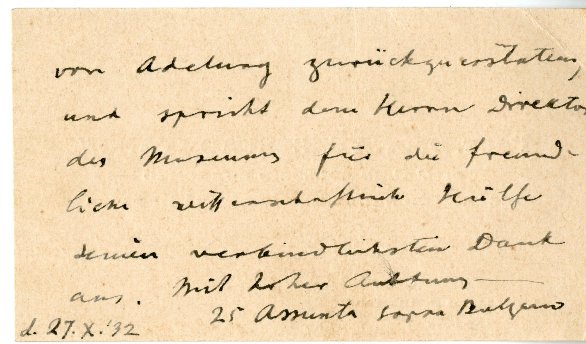 von Adelung zurückzuerstatten,
und spricht dem Herrn Director
des Museums für die freund-
liche wissenschaftliche Hülfe
seinen verbindlichsten Dank
aus. Mit hoher Achtung
25 Assunta sopra Bolzano
d. 27.X.'32